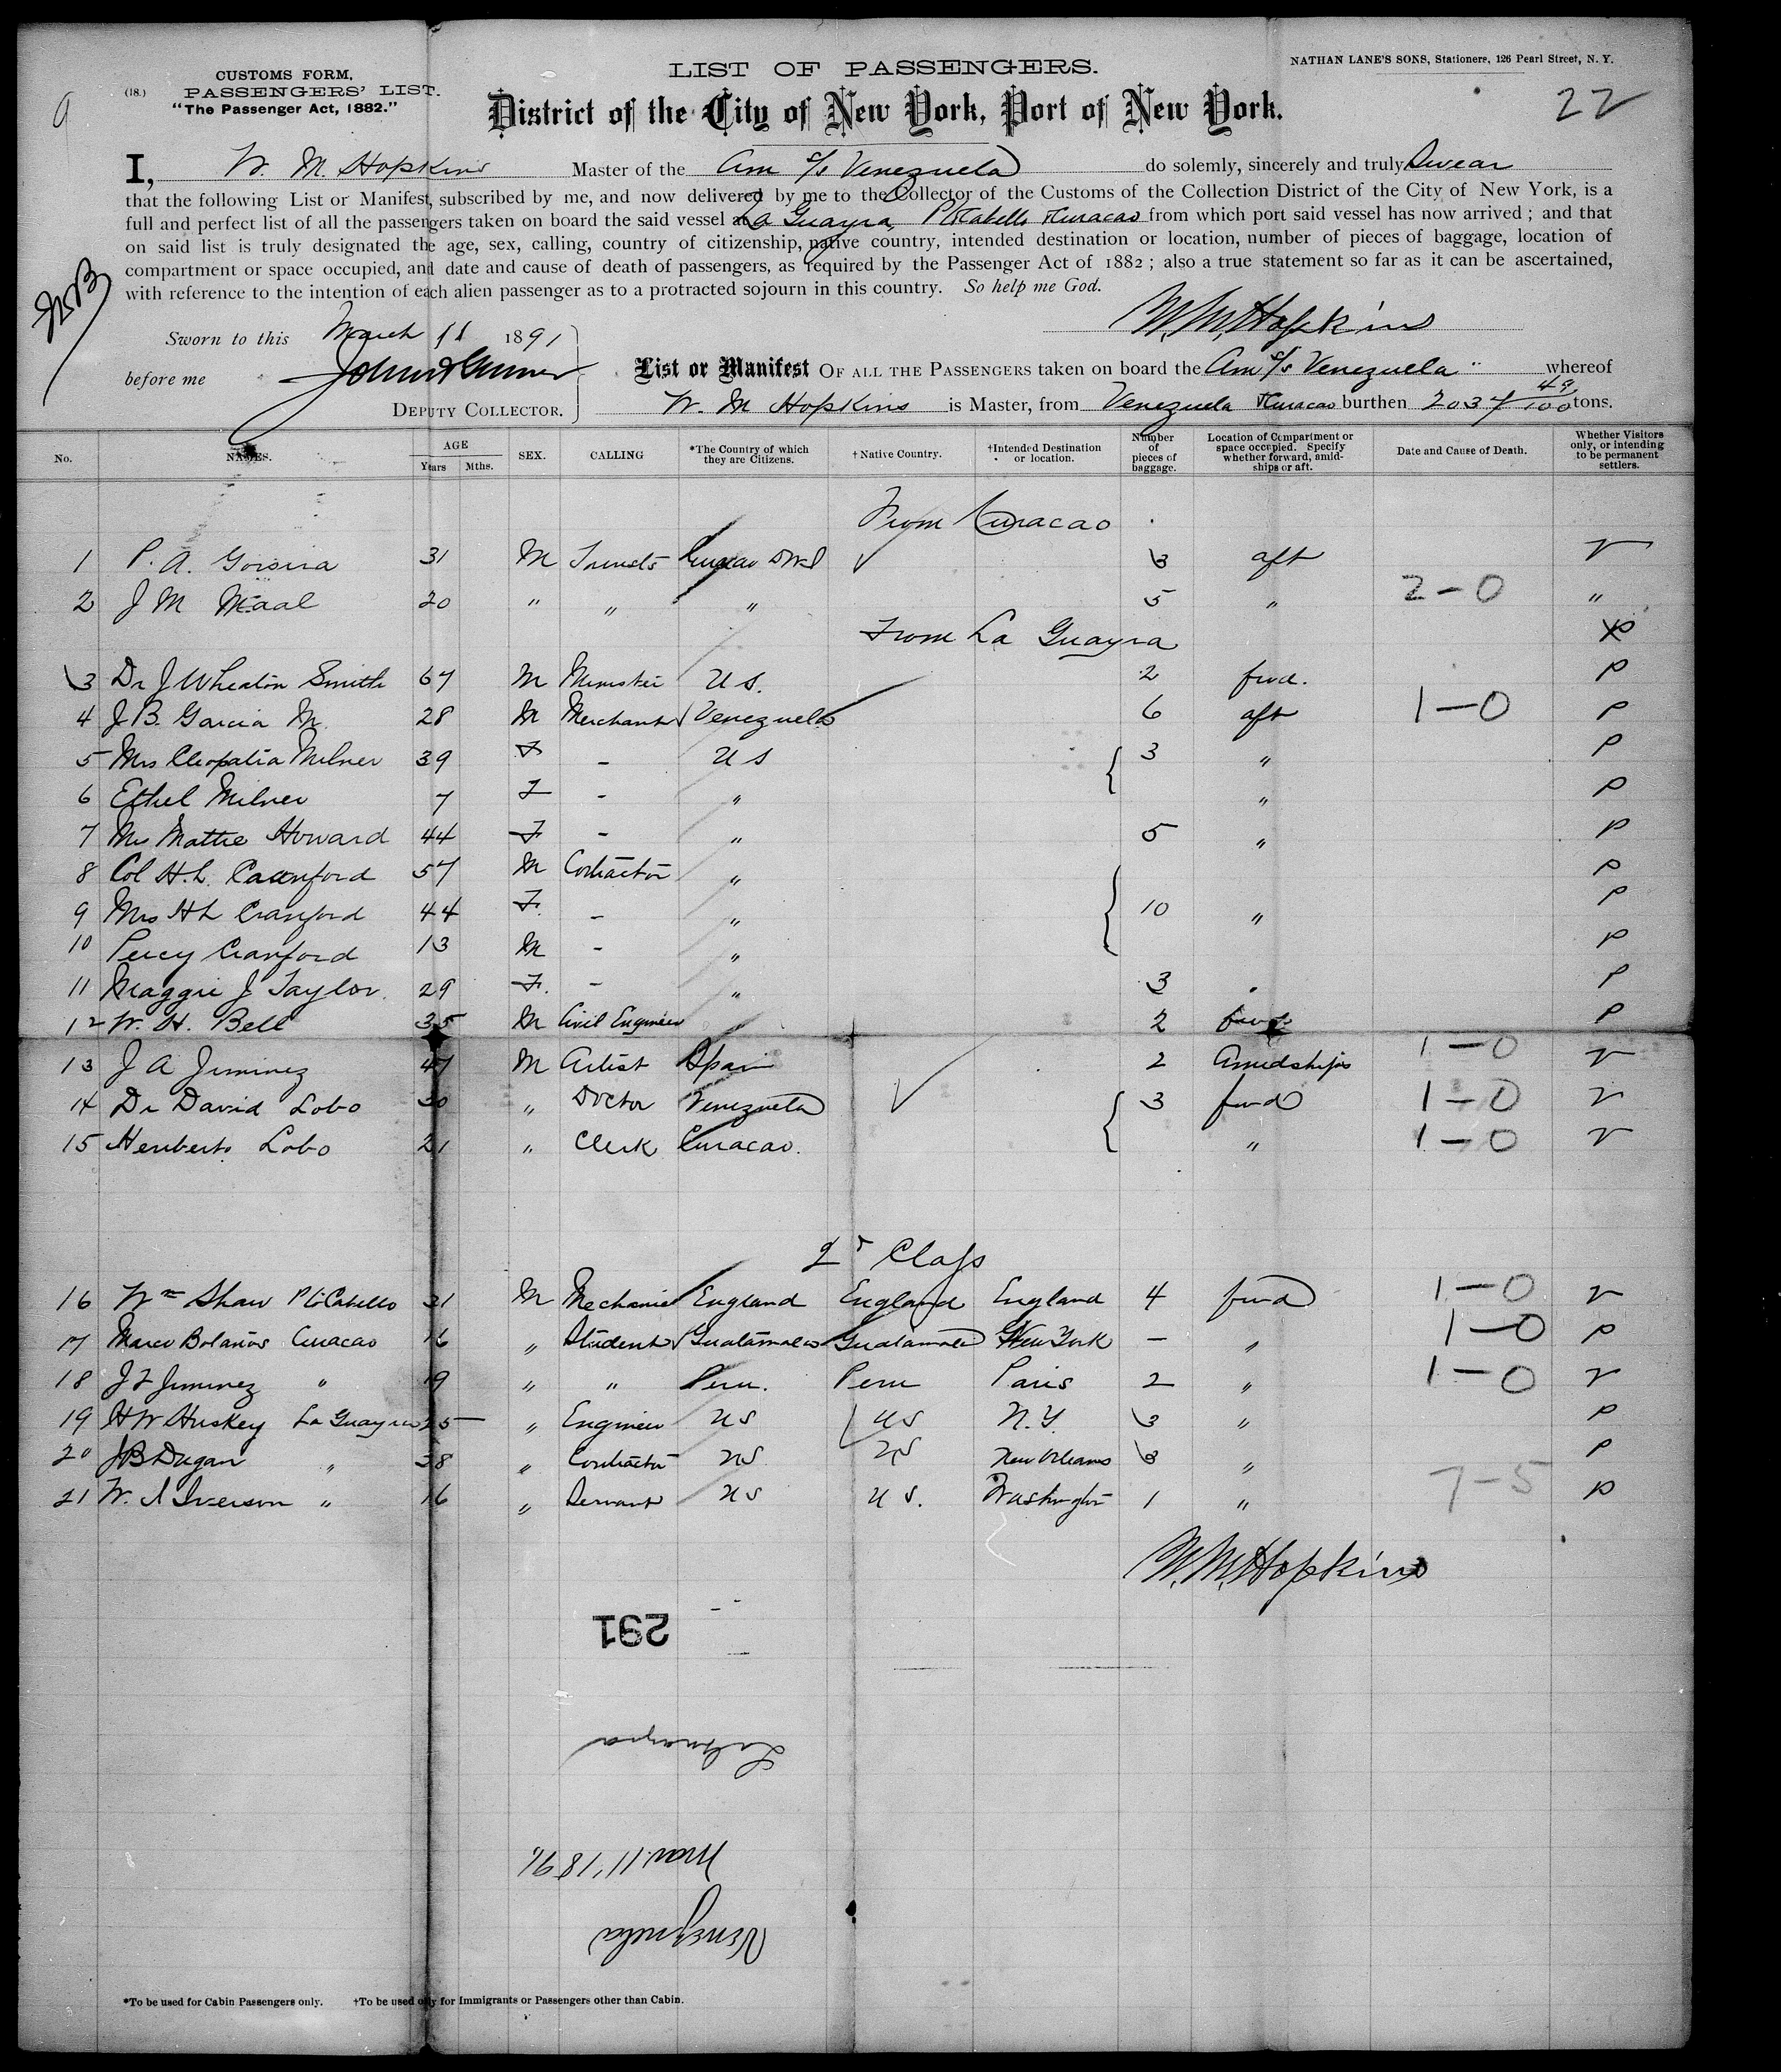 CUSTOMS FORM.
(18.) PASSENGERS' LIST.
"The Passenger Act, 1882."
LIST OF PASSENGERS.
NATHAN LANE'S SONS, Stationers, 126 Pearl Street, N. Y.
9
22
District of the City of New York, Port of New York.
I, W. M. Hopkins Master of the Am S/s Venezuela do solemnly, sincerely and truly Swear
that the following List or Manifest, subscribed by me, and now delivered by me to the Collector of the Customs of the Collection District of the City of New York, is a
full and perfect list of all the passengers taken on board the said vessel at La Guayra, Pto Cabello & Curacao from which port said vessel has now arrived ; and that
on said list is truly designated the age, sex, calling, country of citizenship, native country, intended destination or location, number of pieces of baggage, location of
compartment or space occupied, and date and cause of death of passengers, as required by the Passenger Act of 1882 ; also a true statement so far as it can be ascertained,
with reference to the intention of each alien passenger as to a protracted sojourn in this country. So help me God.
W. M. Hopkins
Sworn to this March 11 1891
before me
DEPUTY COLLECTOR.
List or Manifest OF ALL THE PASSENGERS taken on board the Am S/s Venezuela whereof
W. M Hopkins is Master, from Venezuela & Curacao burthen 2037 49/100 tons.
No. NAMES. AGE Years Mths. SEX. CALLING *The Country of which they are Citizens. †Native Country. †Intended Destination or location. Number of pieces of baggage. Location of Compartment or space occupied. Specify whether forward, amidships or aft. Date and Cause of Death. Whether Visitors only, or intending to be permanent settlers.
From Curacao
1 P. A. Gorsira 31 M Tourists Curacao DWI 3 aft v
2 J M Maal 20 " " " 5 " 2-0 "
From La Guayra
3 Dr J Wheaton Smith 67 M Minister U S. 2 fwd. P
4 J B. Garcia M. 28 M Merchant Venezuela 6 aft 1-0 P
5 Mrs Cleopatia Milner 39 F - U S 3 " P
6 Ethel Milner 7 F - " " P
7 Mrs Mattie Howard 44 F - " 5 " P
8 Col H. L. Cranford 57 M Contractor " P
9 Mrs H L Cranford 44 F. - " 10 " P
10 Percy Cranford 13 M - " P
11 Maggie J Taylor. 29 F. - " 3 " P
12 W. H. Bell 35 M Civil Engineer 2 fwd. P
13 J A Jiminez 47 M Artist Spain 2 Amidships 1-0 v
14 Dr David Lobo 30 " Doctor Venezuela 3 fwd 1-0 v
15 Heriberto Lobo 21 " Clerk Curacao. " 1-0 v
2d Class
16 Wm Shaw Pto Cabello 31 M Mechanic England England England 4 fwd 1-0 v
17 Marco Bolaños Curacao 16 " Student Guatamala Guatamala New York — " 1-0 P
18 J F Jiminez " 19 " " Peru. Peru Paris 2 " 1-0 v
19 H W Huskey La Guayra 25 " Engineer US US N.Y. 3 " P
20 J B Dugan " 38 " Contractor US US New Orleans 3 " P
21 W. A Iverson " 16 " Servant US U S. Washington 1 " 7-5 P
W. M. Hopkins
291
La Guayra
Mar. 11, 1891
Venezuela
*To be used for Cabin Passengers only. †To be used only for Immigrants or Passengers other than Cabin.